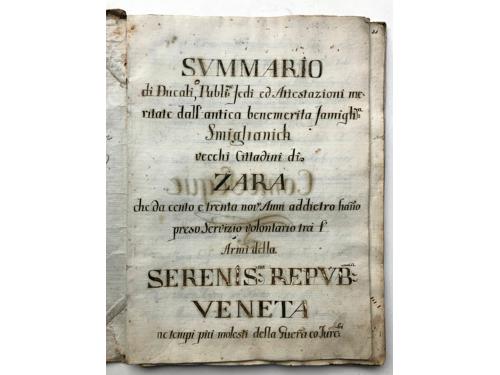 SVMMARIO
di Ducali, Publi.e fedi ed Attestazioni me-
ritate dall' antica benemerita famigli.a
Smiglianich
vecchi Cittadini di
ZARA
che da cento e trenta nov.e Anni addietro hano
preso Servizio volontario tra l'
Armi della
SERENIS.ma REPVB.ca
VENETA
ne tempi più molesti della Guerra co Turchi